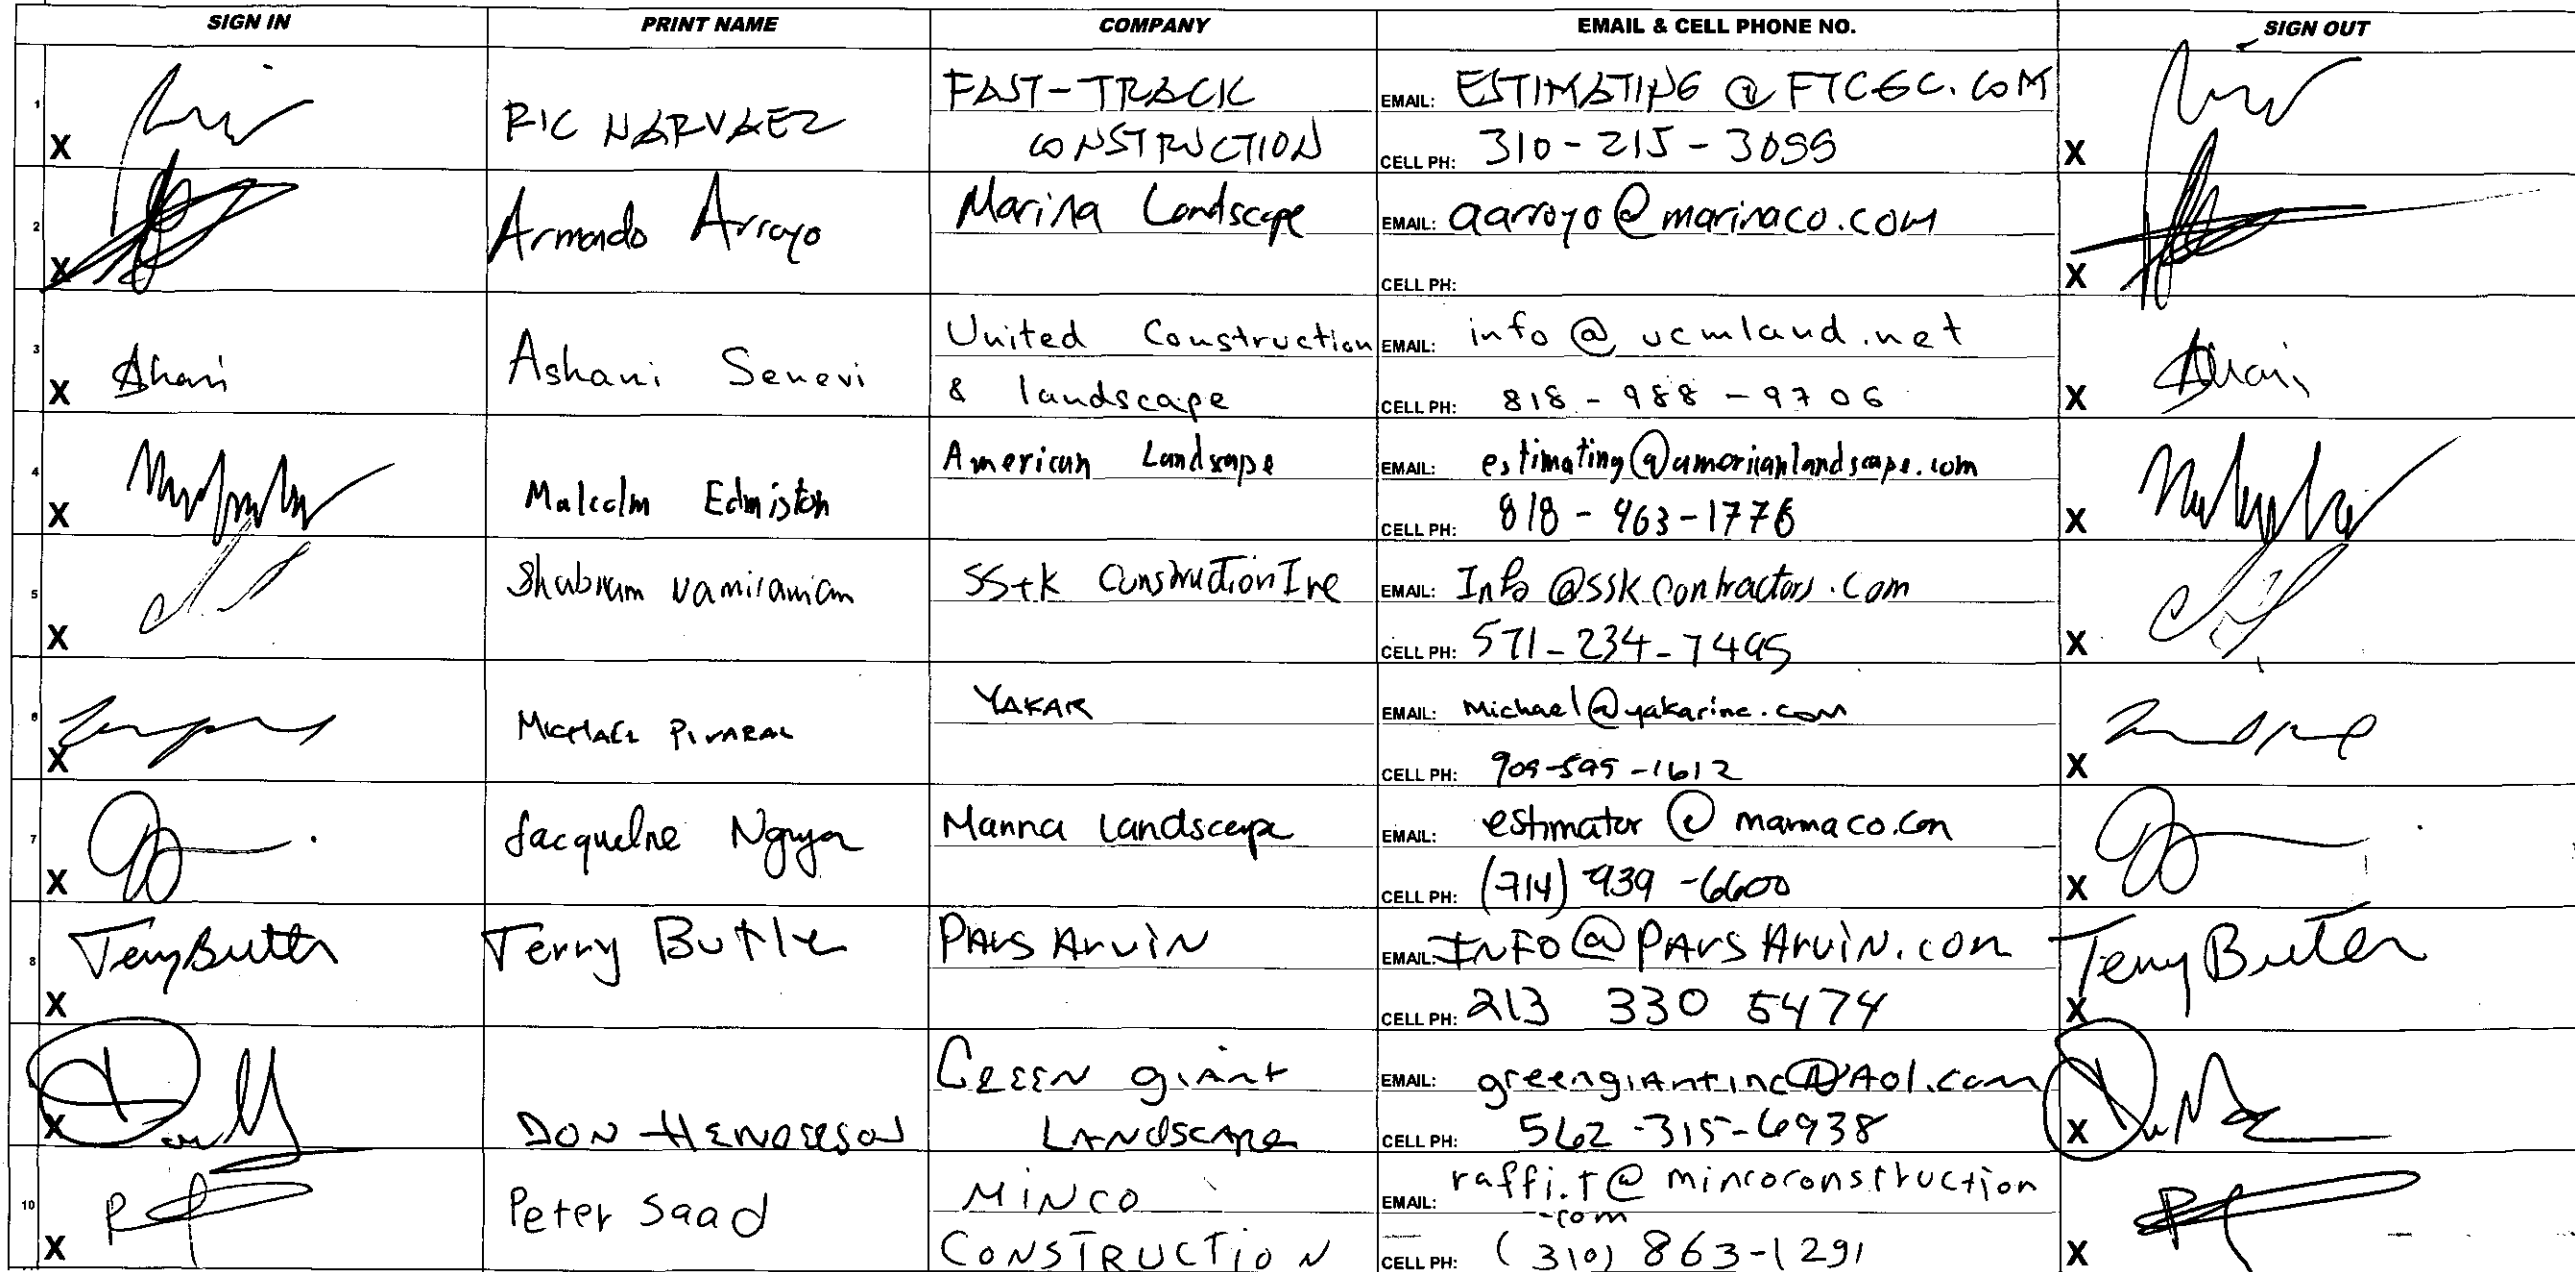 SIGN IN PRINT NAME COMPANY EMAIL & CELL PHONE NO. SIGN OUT
1 X RIC NARVAEZ FAST-TRACK EMAIL: ESTIMATING @ FTCGC.COM X
CONSTRUCTION CELL PH: 310-215-3099
2 X Armando Arroyo Marina Landscape EMAIL: aarroyo@marinaco.com X
CELL PH:
3 X Ashani Senevi United Construction EMAIL: info @ ucmland.net X
& landscape CELL PH: 818-988-9706
4 X Malcolm Edmiston American Landscape EMAIL: estimating@americanlandscape.com X
CELL PH: 818-963-1776
5 X SS+K Construction Inc EMAIL: Info @SSKContractors.Com X
CELL PH: 571-234-7495
6 X Michael Pivaral YAKAR EMAIL: Michael@yakarinc.com X
CELL PH: 909-595-1612
7 X Jacqueline Nguyen Marina Landscape EMAIL: estimator @ marinaco.com X
CELL PH: (714) 939-6600
8 X Terry Butler Terry Butler PArs Arvin EMAIL: INFO@PArsArvin.com X Terry Butler
CELL PH: 213 330 5474
X DON HENDERSON GREEN giAnt EMAIL: greengiAntinc@Aol.com X
LANDSCAPE CELL PH: 562-315-6938
10 X Peter Saad MINCO EMAIL: raffi.t@mincoconstruction X
.com
CONSTRUCTION CELL PH: (310) 863-1291